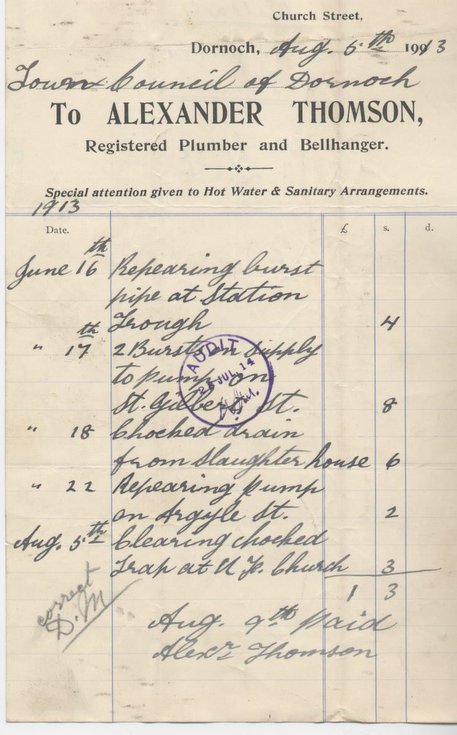 Church Street,
Dornoch, Aug. 6th 1913
Town Council of Dornoch
To ALEXANDER THOMSON,
Registered Plumber and Bellhanger.
Special attention given to Hot Water & Sanitary Arrangements.
1913
Date. £ s. d.
June 16th Repearing burst
pipe at Station
Trough 4
" 17th 2 Bursts on supply
to pump on
St. Gilbert St. 8
" 18 Chocked drain
from slaughter house 6
" 22 Repearing Pump
on Argyle St. 2
Aug. 5th Clearing chocked
Trap at U. F. Church 3
1 3
Aug. 9th Paid
Alexr Thomson
correct
D. M
AUDIT
JUL. 14